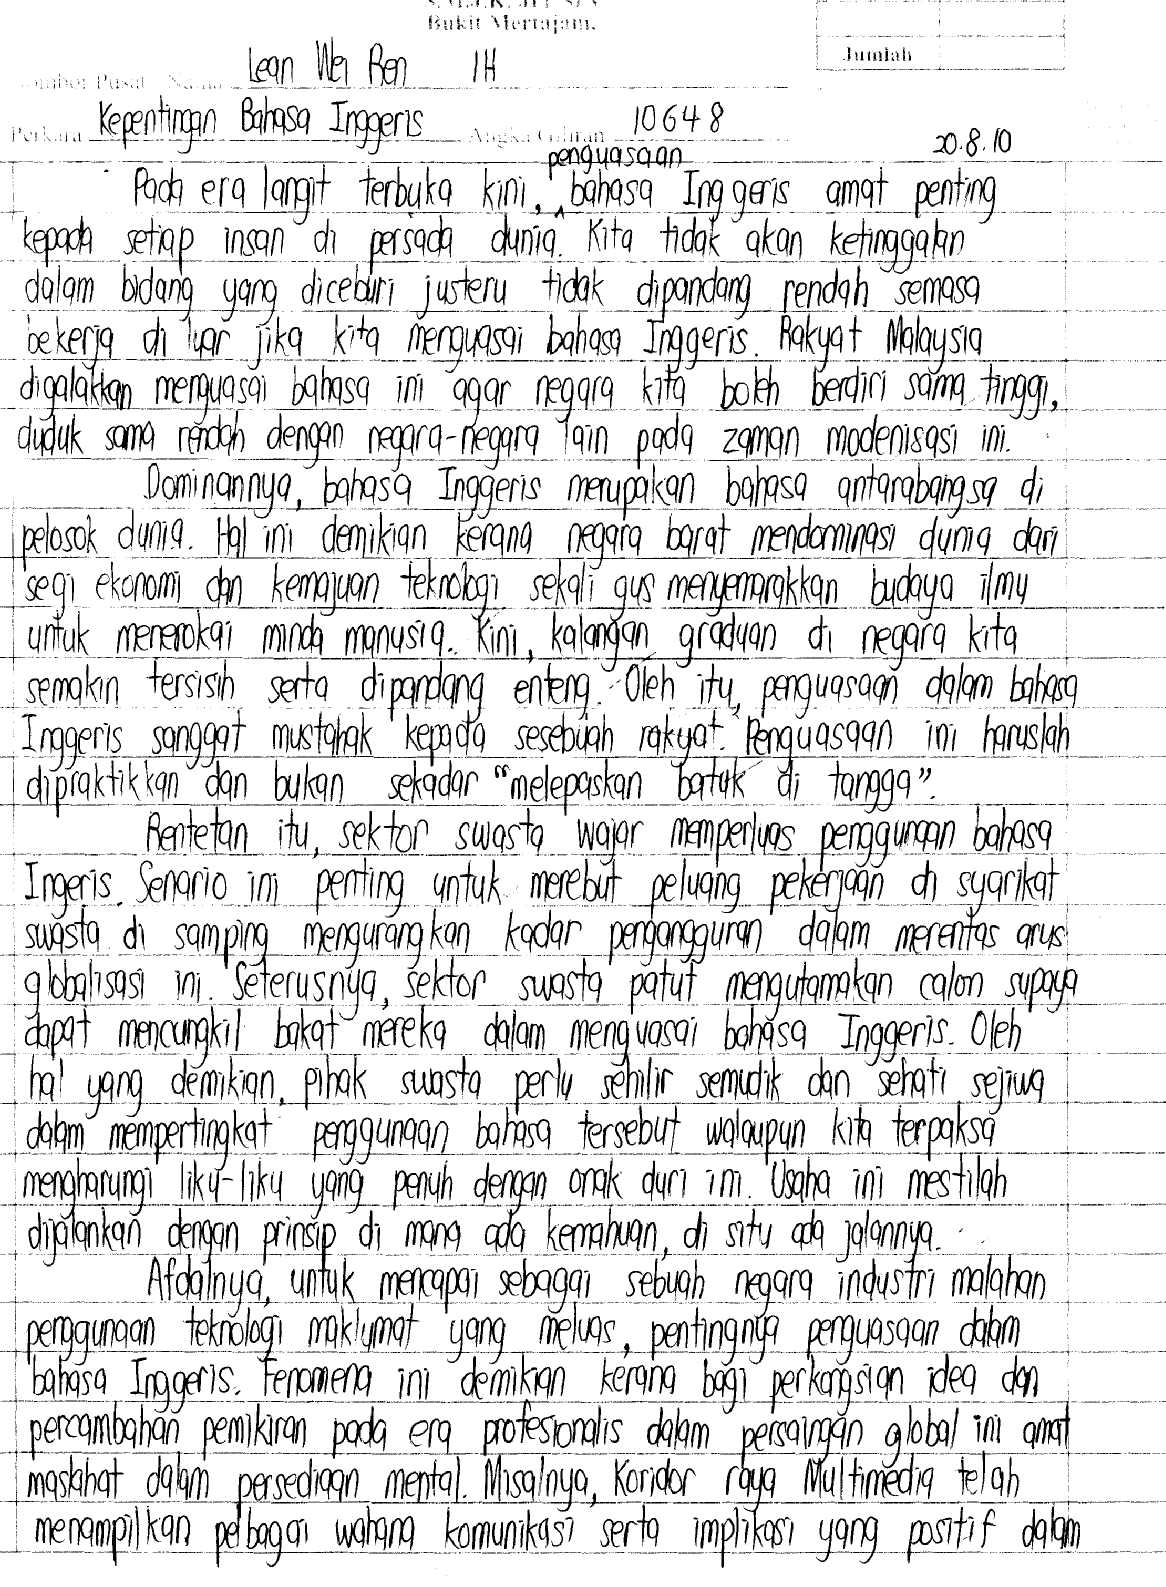 Bukit Mertajam.
Jumlah
Nama Lean Wei Ren 1H
Perkara Kepentingan Bahasa Inggeris Angka Giliran 10648
20.8.10
penguasaan
Pada era langit terbuka kini, ^ bahasa Inggeris amat penting
kepada setiap insan di persada dunia. Kita tidak akan ketinggalan
dalam bidang yang diceburi justeru tidak dipandang rendah semasa
bekerja di luar jika kita menguasai bahasa Inggeris. Rakyat Malaysia
digalakkan menguasai bahasa ini agar negara kita boleh berdiri sama tinggi,
duduk sama rendah dengan negara-negara lain pada zaman modenisasi ini.
Dominannya, bahasa Inggeris merupakan bahasa antarabangsa di
pelosok dunia. Hal ini demikian kerana negara barat mendominasi dunia dari
segi ekonomi dan kemajuan teknologi sekali gus menyemarakkan budaya ilmu
untuk menerokai minda manusia. Kini, kalangan graduan di negara kita
semakin tersisih serta dipandang enteng. Oleh itu, penguasaan dalam bahasa
Inggeris sanggat mustahak kepada sesebuah rakyat. Penguasaan ini haruslah
dipraktikkan dan bukan sekadar "melepaskan batuk di tangga".
Rentetan itu, sektor swasta wajar memperluas penggunaan bahasa
Ingeris. Senario ini penting untuk merebut peluang pekerjaan di syarikat
swasta di samping mengurangkan kadar pengangguran dalam merentas arus
globalisasi ini. Seterusnya, sektor swasta patut mengutamakan calon supaya
dapat mencungkil bakat mereka dalam menguasai bahasa Inggeris. Oleh
hal yang demikian, pihak swasta perlu sehilir semudik dan sehati sejiwa
dalam mempertingkat penggunaan bahasa tersebut walaupun kita terpaksa
mengharungi liku-liku yang penuh dengan onak duri ini. Usaha ini mestilah
dijalankan dengan prinsip di mana ada kemahuan, di situ ada jalannya.
Afdalnya, untuk mencapai sebagai sebuah negara industri malahan
penggunaan teknologi maklumat yang meluas, pentingnya penguasaan dalam
bahasa Inggeris. Fenomena ini demikian kerana bagi perkongsian idea dan
percambahan pemikiran pada era profesionalis dalam persaingan global ini amat
maslahat dalam persediaan mental. Misalnya, Koridor raya Multimedia telah
menampilkan pelbagai wahana komunikasi serta implikasi yang positif dalam